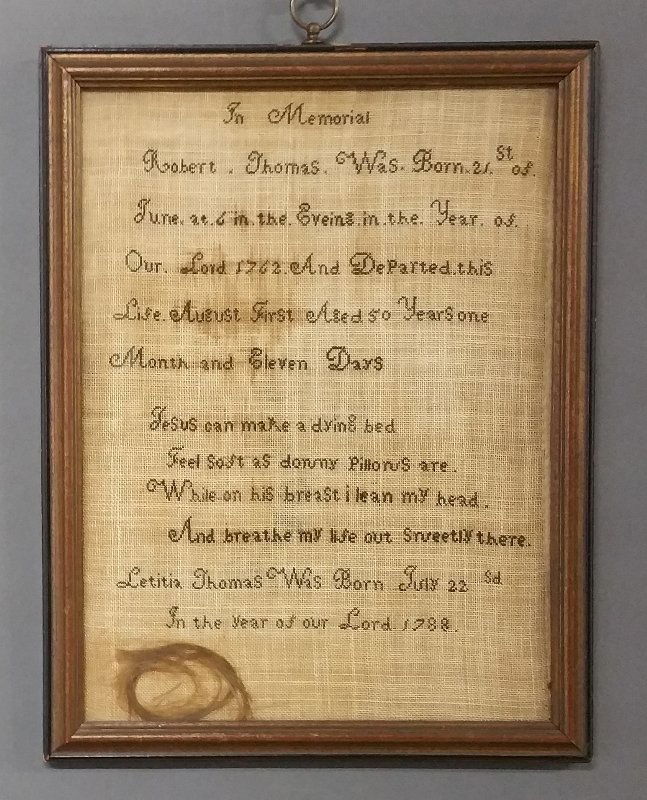 In Memorial
Robert . Thomas. Was. Born. 21.St of.
June. at. 6 in. the. Eveing. in. the. Year. of.
Our. Lord 1762. And Departed. this
Life. August First Aged 50 Years one
Month and Eleven Days
Jesus can make a dying bed
Feel soft as downy Pillows are.
While on his breast i lean my head.
And breathe my life out Sweetly there.
Letitia Thomas Was Born July 22 Sd
In the year of our Lord 1788.